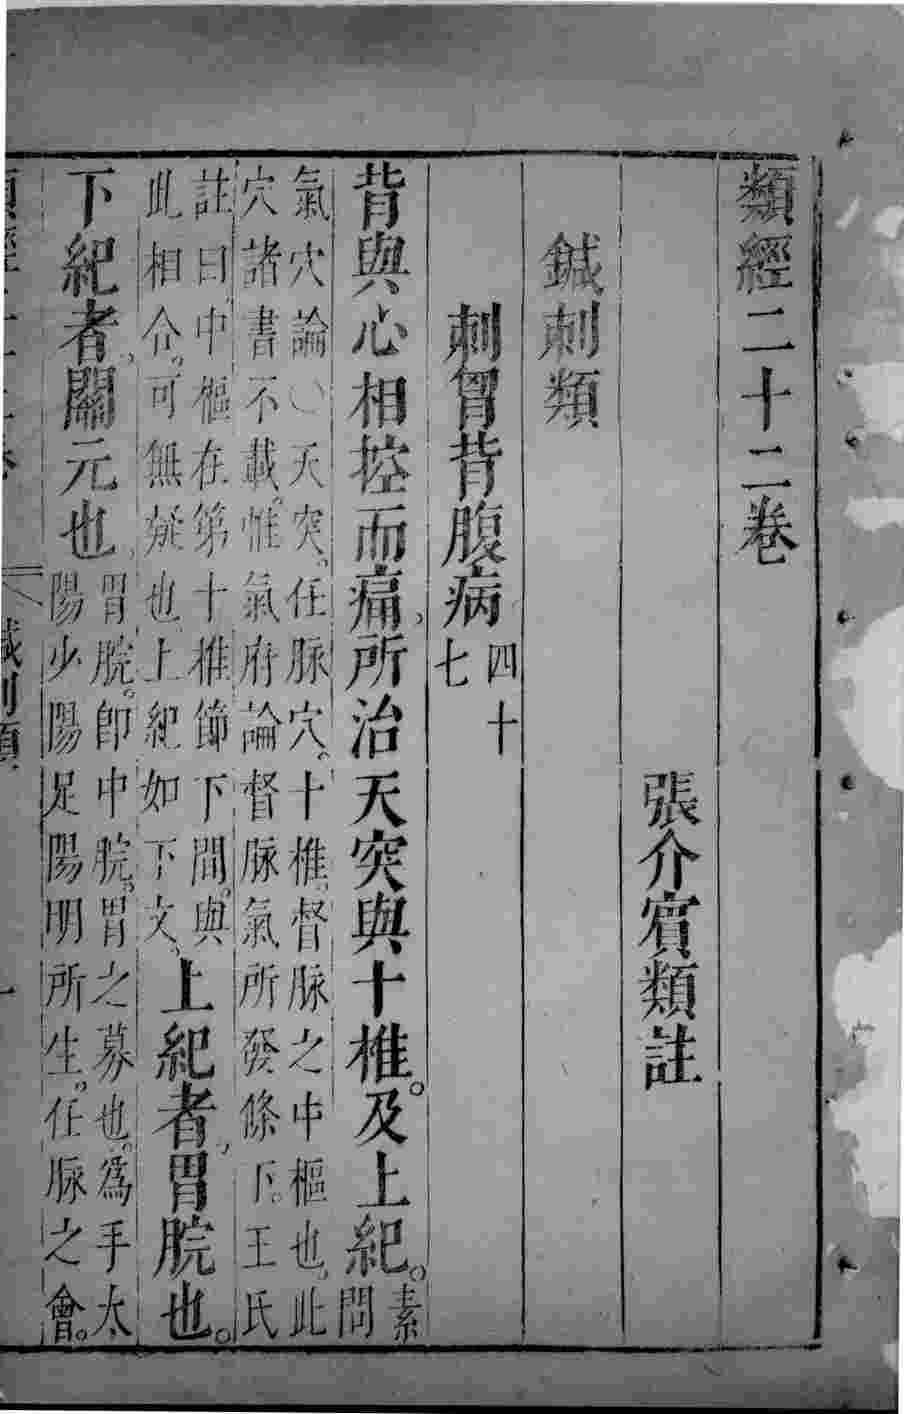 類經二十二卷
張介賓類註
鍼刺類
刺胷背腹病
四十
七
背與心相控而痛，所治天突與十椎。及上紀。
素
問
氣穴論〇天突。任脉穴。十椎。督脉之中樞也。此
穴諸書不載。惟氣府論督脉氣所發條下。王氏
註曰，中樞在第十椎節下間。與
此相合。可無疑也。上紀如下文。
上紀者，胃脘也。
下紀者，關元也。
胃脘。即中脘。胃之募也。爲手太
陽少陽足陽明所生。任脉之會。
鍼刺類
一